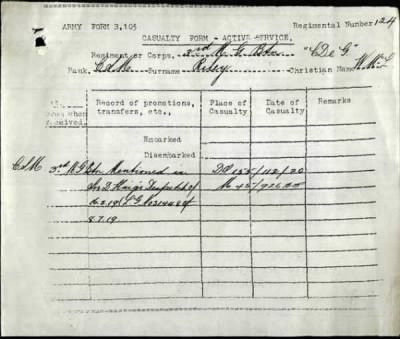 ARMY FORM B.103 Regimental Number 124
CASUALTY FORM - ACTIVE SERVICE.
Regiment or Corps. 3rd M. G. Btn "C De G"
Rank. Surname Christian Name
Record of promotions, Place of Date of Remarks
transfers, etc., Casualty Casualty
from whom
received.
Embarked
Disembarked
3rd M G Btn Mentioned in DO 155/112/20
Sir D Haig's Despatch of
16.3.19 (L G No 31448 of
8.7.19